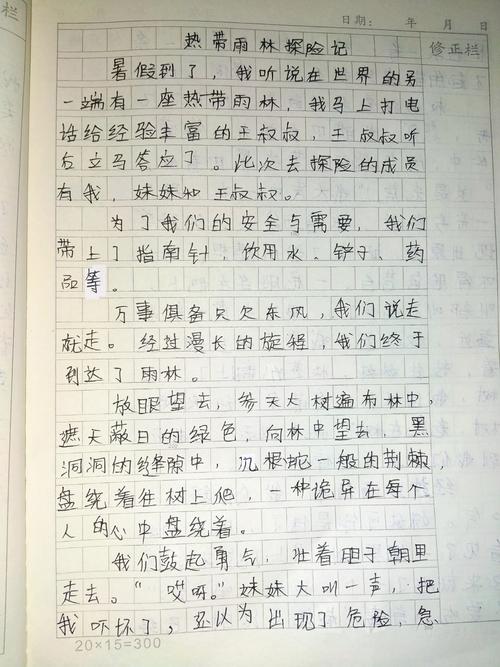 日期： 年 月 日
热带雨林探险记 修正栏
暑假到了，我听说在世界的另
一端有一座热带雨林，我马上打电
话给经验丰富的王叔叔，王叔叔听
后立马答应了。此次去探险的成员
有我，妹妹和王叔叔。
为了我们的安全与需要，我们
带上了指南针，饮用水、铲子、药
品等。
万事俱备欠欠东风，我们说走
就走。经过漫长的旋程，我们终于
到达了雨林。
放眼望去，参天大树遍布林中，
遮天蔽日的绿色，向林中望去，黑
洞洞的缝隙中，几根蛇一般的荆棘，
盘绕着往树上爬，一种诡异在每个
人的心中盘绕着。
我们鼓起勇气，壮着胆子朝里
走去。“哎呀。”妹妹大叫一声，把
我吓坏了，还以为出现了危险，急
20×15=300
栏